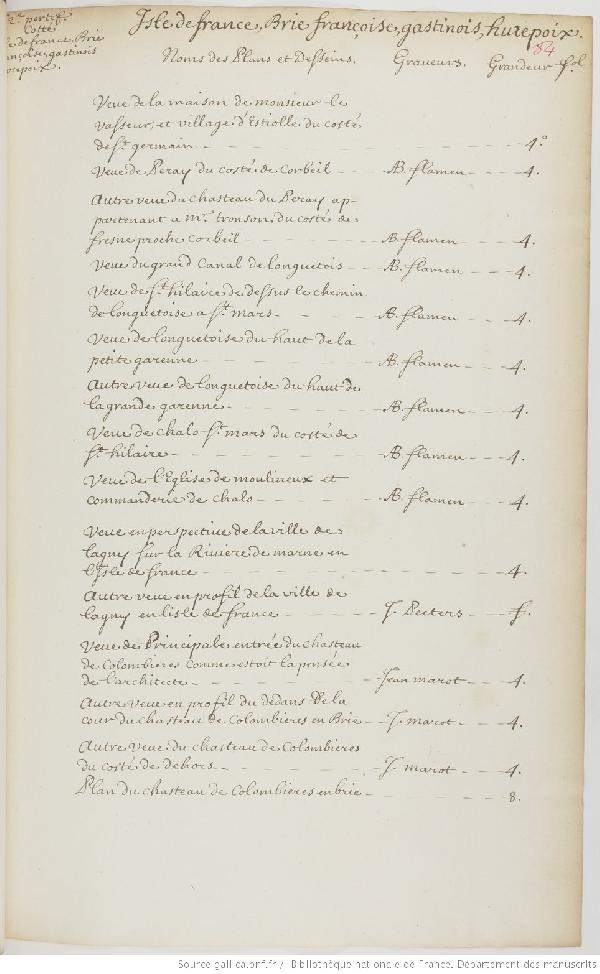 portef.
Cotté
de france, Brie
françoise, gastinois
hurepoix.
Isle de france, Brie françoise, gastinois, hurepoix.
84
Noms des Plans et Desseins. Graveurs. Grandeur fol.
Veue de la maison de monsieur le
vasseur, et village d'Estiolle du costé
de st. germain - - - - 4.°
Veue de Peray du costé de Corbeil - - AB. flamen - - 4.
Autre veue du chasteau du Peray ap-
partenant a mr. tronson, du costé de
fresne proche Corbeil - - - - AB. flamen - - - 4.
Veue du grand Canal de longuetois - - AB. flamen - - - 4.
Veue de st. hilaire de dessus le chemin
de longuetoise a st. mars - - - - AB. flamen - - - 4.
Veue de longuetoise du haut de la
petite garenne - - - - AB. flamen - - - 4.
Autre veue de longuetoise du haut de
la grande garenne - - - - AB. flamen - - - 4.
Veue de chalo st. mars du costé de
st. hilaire - - - - AB. flamen - - - 4.
Veue de l'Eglise de moulineux et
commanderie de chalo - - - - AB. flamen - - - 4.
Veue en perspective de la ville de
lagny sur la Riviere de marne en
l'Isle de france - - - - 4.
Autre veue en profil de la ville de
lagny en lisle de france - - - J. Peeters - - f.
Veue de Principale entrée du chasteau
de Colombieres comme estoit la pensée
de l'architecte - - - - Jean marot - - - 4.
Autre veue en profil du dedans de la
cour du chasteau de Colombieres en Brie - - J. marot - - - 4.
Autre veue du chasteau de Colombieres
du costé de dehors - - - - J. marot - - - 4.
Plan du chasteau de Colombieres en brie - - - - 8.
Source gallica.bnf.fr / Bibliothèque nationale de France. Département des manuscrits